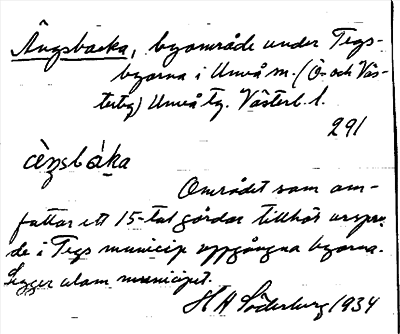 Ängsbacka, byområde under Tegs-
byarna i Umeå m. (Ö- och Väs-
terteg) Umeå tg. Västerb. l.
291
Området som om-
fattar ett 15-tal gårdar tillhör
de i Tegs municip uppgångna byarna.
Ligger utom municipet.
H A Söderberg 1934